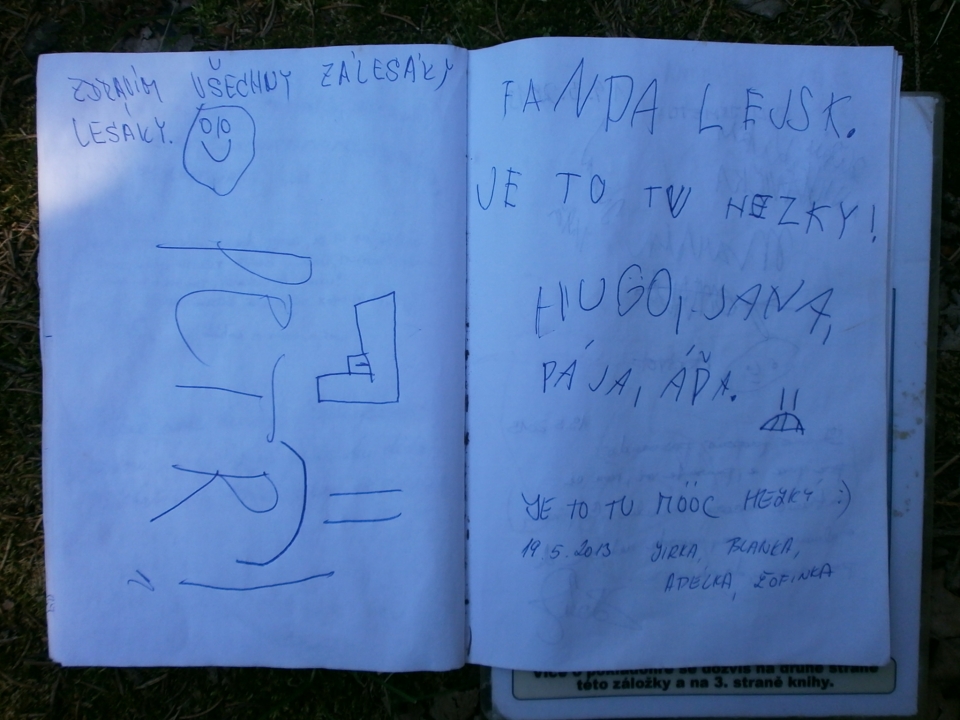 ZDRAVÍM VŠECHNY ZÁLESÁKY
LESÁKY.
FANDA LEJSK.
JE TO TU HEZKY!
HUGO, JANA,
PÁJA, ÁĎA.
JE TO TU MÓÓC HEZKÝ :)
19.5.2013 JIRKA, BLANKA,
ADÉLKA, ŽOFINKA
Více o pokladovně se dozvíš na druhé straně
této záložky a na 3. straně knihy.